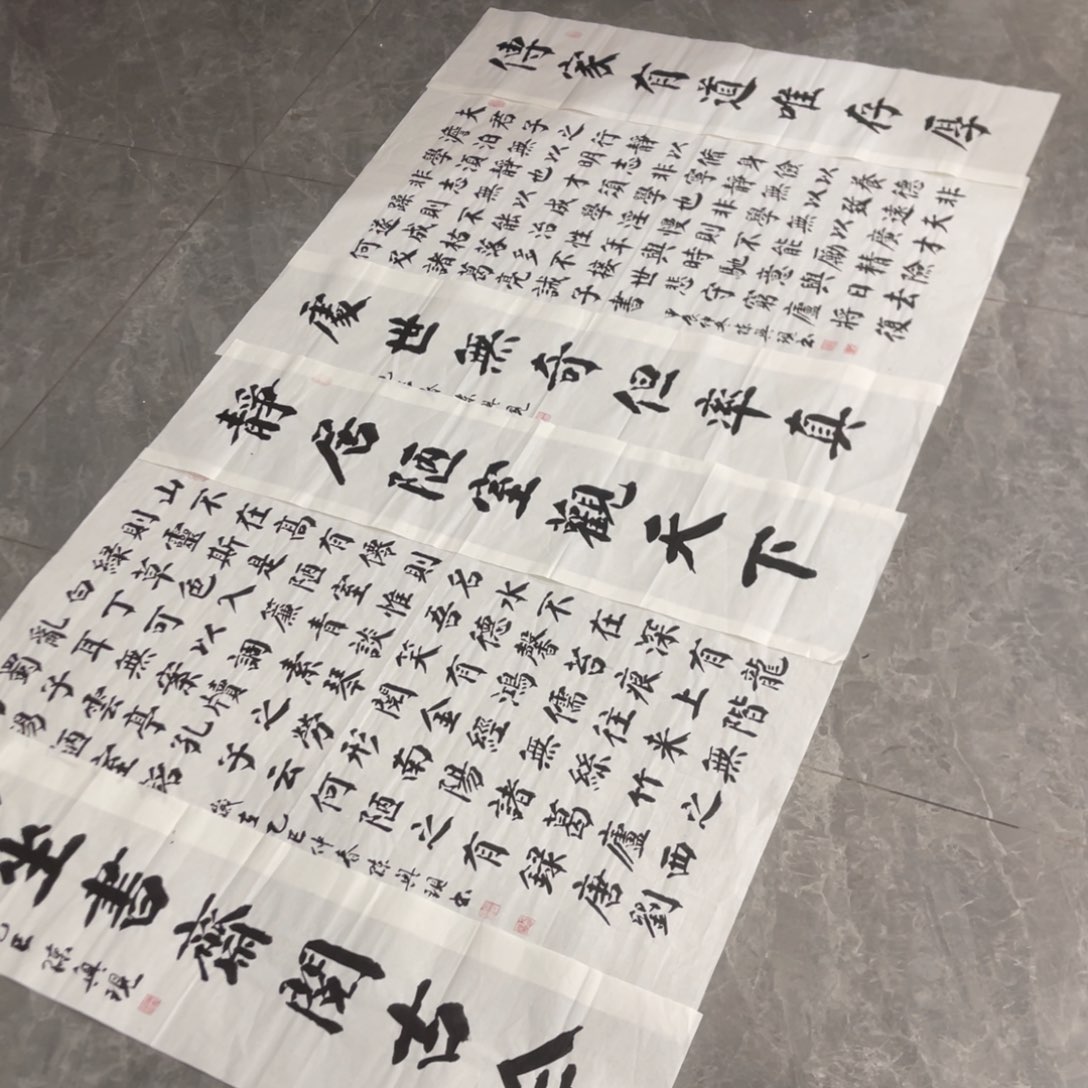 傳家有道唯存厚
夫君子之行靜以脩身儉以養德非
澹泊無以明志非寧靜無以致遠夫
學須靜也才須學也非學無以廣才
非志無以成學淫慢則不能勵精險
躁則不能治性年與時馳意與日去
遂成枯落多不接世悲守窮廬將復
何及諸葛亮誡子書
處世無奇但率真
靜居陋室觀天下
山不在高有僊則名水不在深有龍
則靈斯是陋室惟吾德馨苔痕上階
綠草色入簾青談笑有鴻儒往來無
白丁可以調素琴閱金經無絲竹之
亂耳無案牘之勞形南陽諸葛廬西
蜀子雲亭孔子云何陋之有錄唐劉
錫陋室銘乙巳仲春陳興現書
坐書齋閱古今
乙巳陳興現